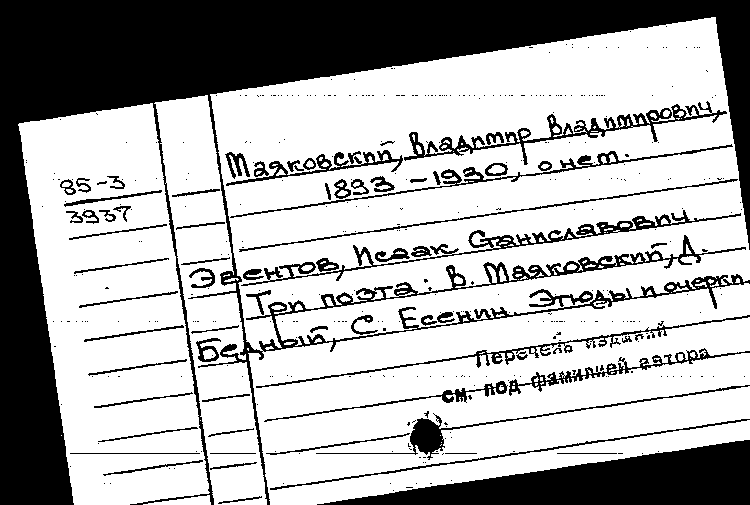 Маяковский, Владимир Владимирович,
1893 - 1930, о нем.
85-3
3937
Эвентов, Исаак Станиславович.
Три поэта: В. Маяковский, Д.
Бедный, С. Есенин. Этюды и очерки.
Перечень изданий
см. под фамилией автора